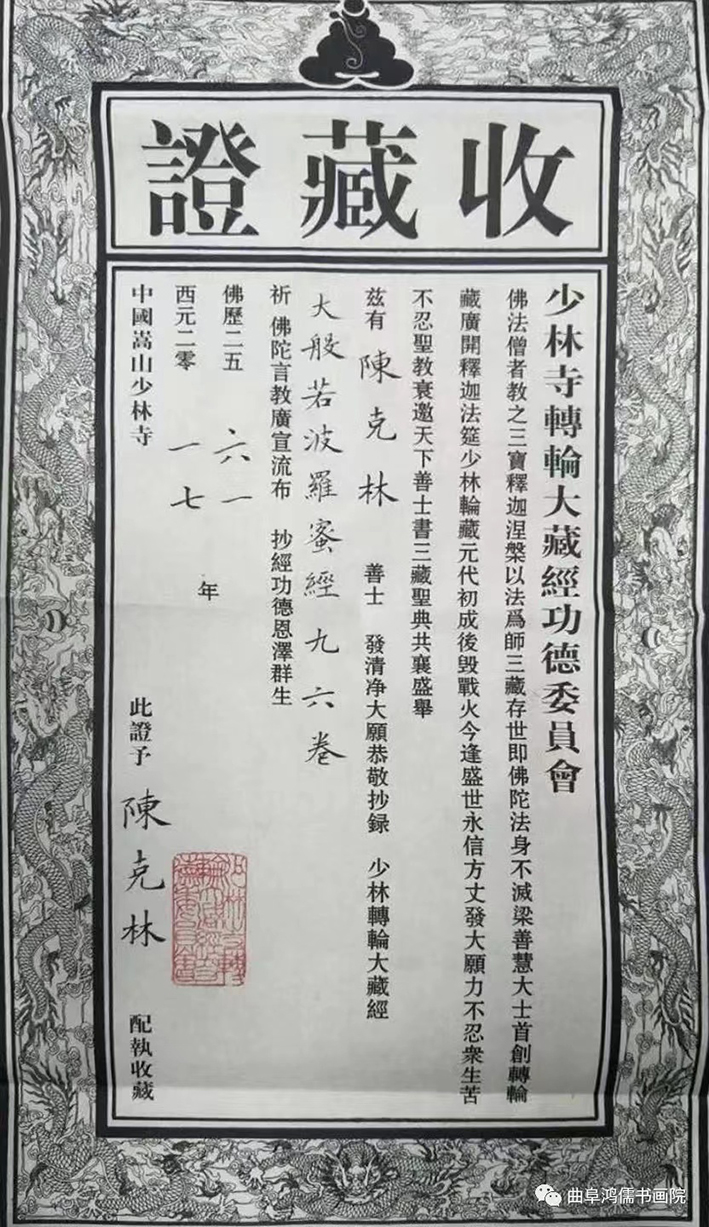 收藏證
少林寺轉輪大藏經功德委員會
佛法僧者教之三寶釋迦涅槃以法爲師三藏存世即佛陀法身不滅梁善慧大士首創轉輪
藏廣開釋迦法筵少林輪藏元代初成後毀戰火今逢盛世永信方丈發大願力不忍衆生苦
不忍聖教衰邀天下善士書三藏聖典共襄盛舉
茲有 陳克林 善士 發清净大願恭敬抄録 少林轉輪大藏經
大般若波羅蜜經九六卷
祈 佛陀言教廣宣流布 抄經功德恩澤群生
佛歷二五六一
西元二零一七 年
中國嵩山少林寺 此證予 陳克林 配執收藏
曲阜鸿儒书画院